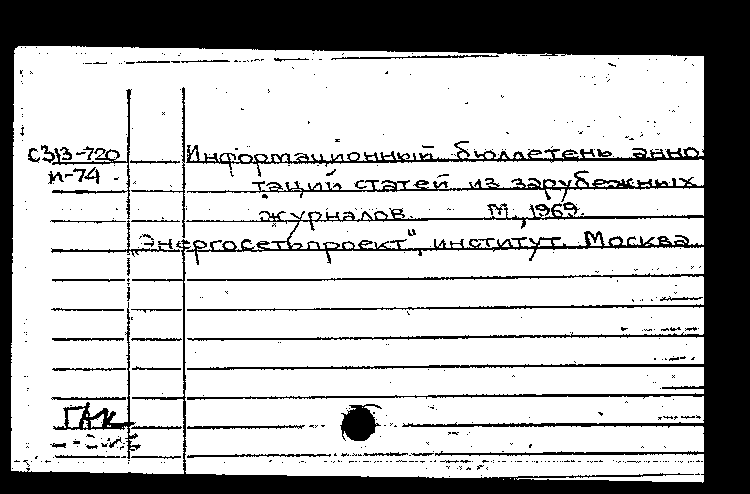 С313-720 Информационный бюллетень анно
и-74 таций статей из зарубежных
журналов. М., 1969.
"Энергосетьпроект", институт. Москва
ГАК